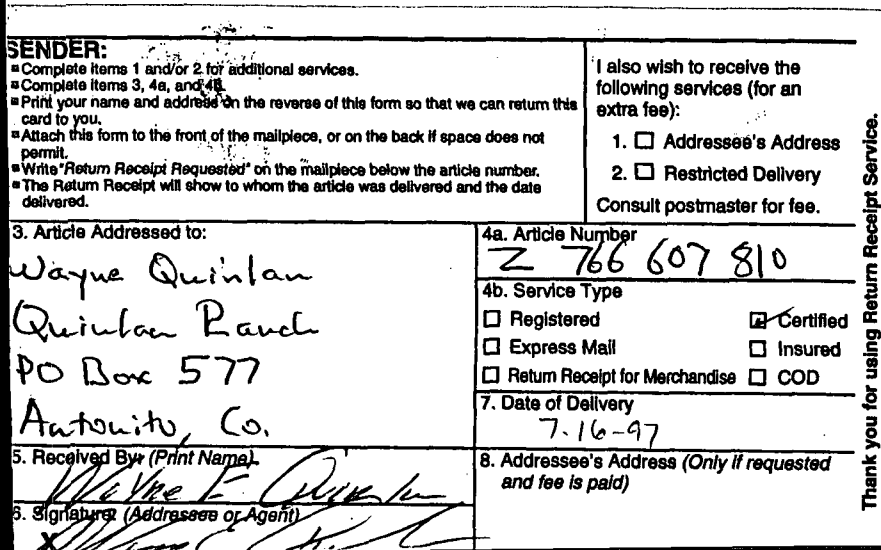 SENDER:
Complete items 1 and/or 2 for additional services.
Complete items 3, 4a, and 4b.
Print your name and address on the reverse of this form so that we can return this
card to you.
Attach this form to the front of the mailpiece, or on the back if space does not
permit.
Write "Return Receipt Requested" on the mailpiece below the article number.
The Return Receipt will show to whom the article was delivered and the date
delivered.
I also wish to receive the
following services (for an
extra fee):
1. ☐ Addressee's Address
2. ☐ Restricted Delivery
Consult postmaster for fee.
3. Article Addressed to:
Wayne Quinlan
Quinlan Ranch
PO Box 577
Antonito, Co.
4a. Article Number
Z 766 607 810
4b. Service Type
☐ Registered ☑ Certified
☐ Express Mail ☐ Insured
☐ Return Receipt for Merchandise ☐ COD
7. Date of Delivery
7-16-97
5. Received By: (Print Name)
Wayne E. Quinlan
6. Signature: (Addressee or Agent)
X
8. Addressee's Address (Only if requested
and fee is paid)
Thank you for using Return Receipt Service.